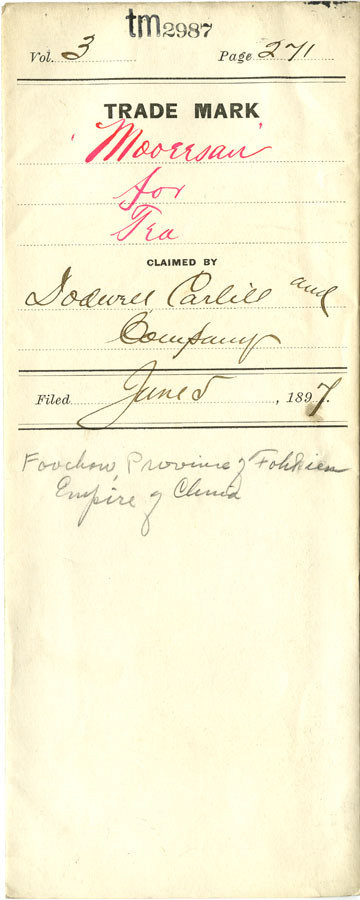 tm2987
Vol. 3 Page 271
TRADE MARK
"Mooersan"
for
Tea
CLAIMED BY
Dodwell Carlill and
Company
Filed June 5, 1897
Foochow, Province of Fohkien
Empire of China